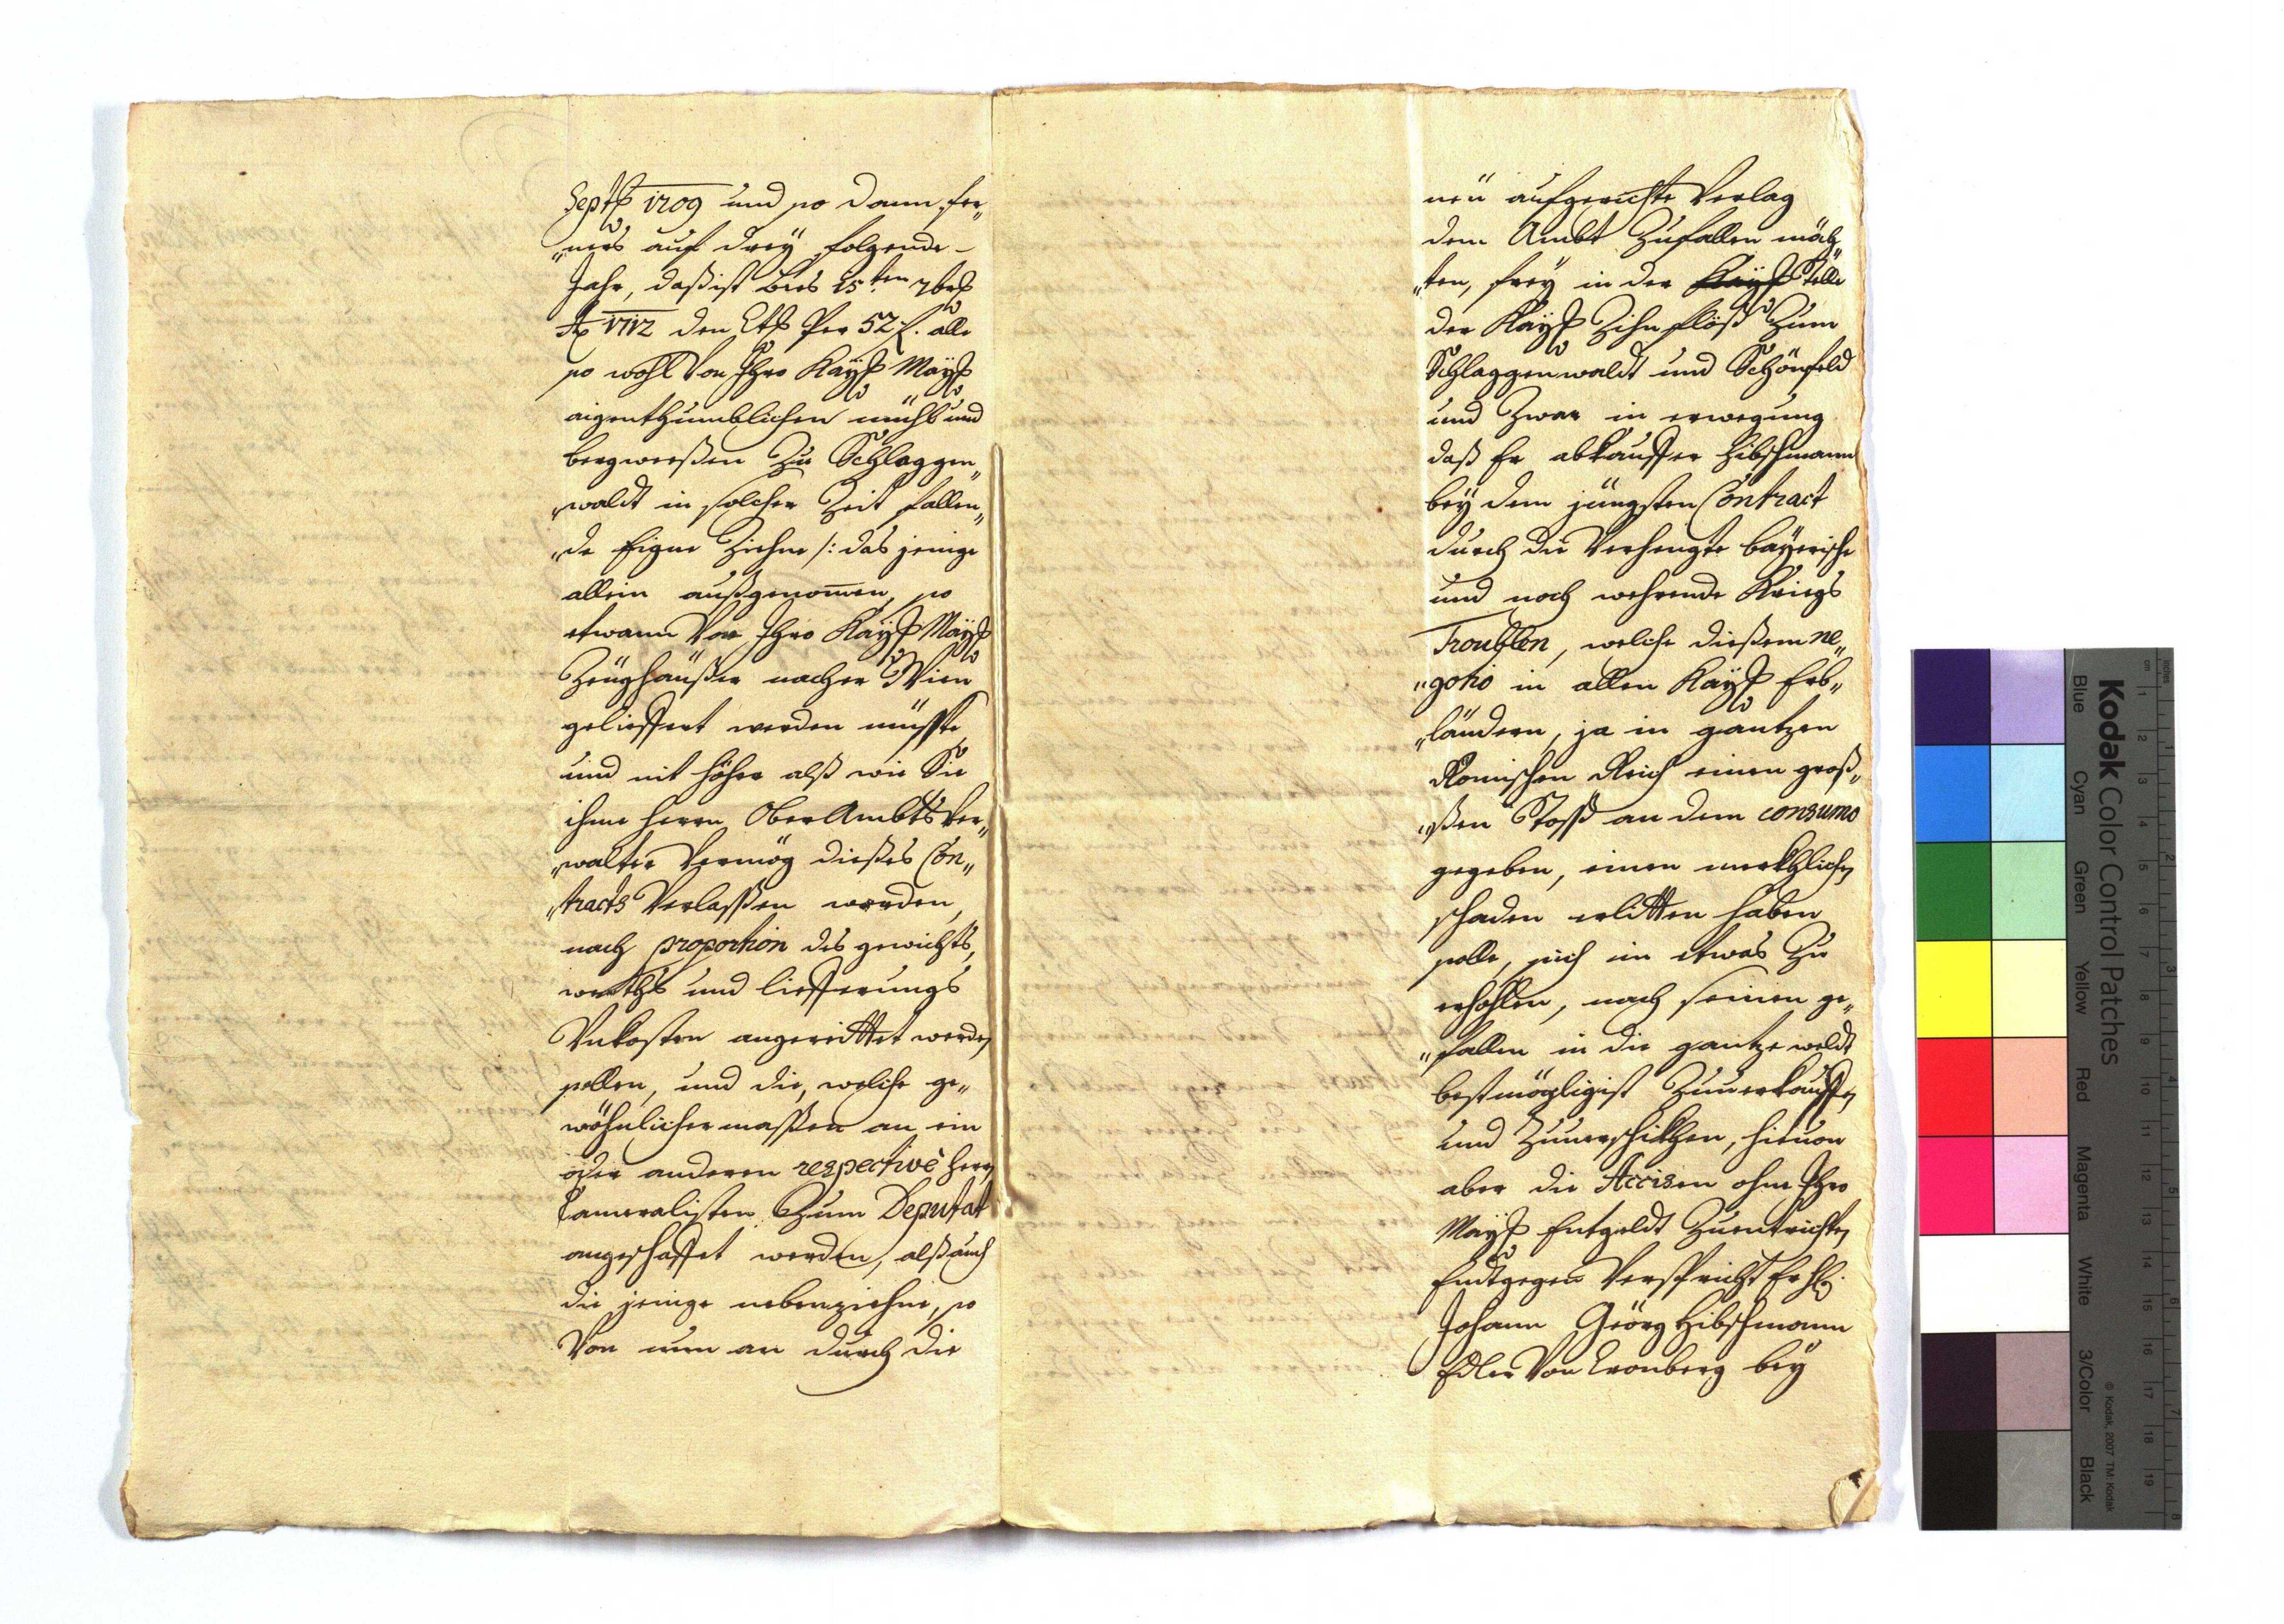 Septb 1709 und so dann fer„
„ners auf dreÿ folgende
Jahr, daß ist bies 15.ten 7bris
Ao 1712 den Ctr per 52 f. alle
so wohl Von Ihro Kaÿs Maÿs
aigenthumblichen mühl und
bergwerßen Zu Schlaggen„
„waldt in solcher Zeit fallen„
„de Eigne Ziehne /: das jenige
allein außgenomen, so
etwann Von Ihro Kaÿs Maÿs
Zeüghäußer nacher Wien
gelieffert werden müsste
und nit höher alß wie Sie
ihme Herrn OberAmbtsVer„
„walter Vermög dießes Con„
„tracts Verlassen worden,
nach proportion des gewichts,
werths und lieferungs
Vnkosten angerittet werden
sollen, und die, welche ge„
wöhnlichermassen an ein
oder anderen respectivè Herrn
Cameralisten Zum Deputat
angeschaffet werden, alß auch
die jenige nebenziehne, so
Von nun an durch die
neü aufgerichte Verlag
dem Ambt Zufallen möch„
„ten, freÿ in der Kaÿs stelle
der Kaÿs Zihnflöß Zum
Schlaggenwaldt und Schönfeld
und Zwar in erwegung
daß Er abkauffer Hibschmann
beÿ dem jüngsten Contract
durch die Verhengte baÿerische
und noch wehrende Kriegs
Troublen, welche dießem ne„
„gotio in allen Kaÿs Erb„
„ländern, ja in gantzen
Römischen Reich einen groß„
„ßen Stoss an dem consumo
gegeben, einen merkhlichen
schaden erlitten haben
solle, sich in etwas Zu
erhohlen, nach seinen ge„
„fallen in die gantze weldt
bestmögligist Zuuerkauffen
und Zuuerschikhen, hieuon
aber die Accisen ohne Ihro
Maÿs Entgeldt Zuentrichten
Endtgegen Verspricht Er H.
Johann Geörg Hibschmann
Edler Von Cronberg beÿ
Kodak Color Control Patches
Blue Cyan Green Yellow Red Magenta White 3/Color Black
© Kodak, 2007 TM: Kodak
inches 1 2 3 4 5 6 7 8
cm 1 2 3 4 5 6 7 8 9 10 11 12 13 14 15 16 17 18 19